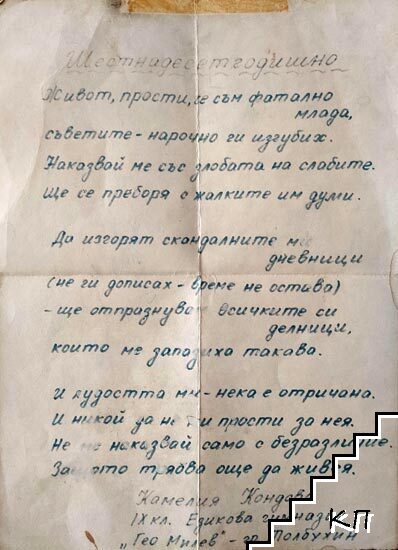 Шестнадесетгодишно
Живот, прости, че съм фатално
млада,
съветите - нарочно ги изгубих.
Наказвай ме със злобата на слабите.
Ще се преборя с жалките им думи.
Да изгорят скандалните ми
дневници
(не ги дописах - време не остава)
- ще отпразнувам всичките си
делници,
които ме запазиха такава.
И лудостта ми - нека е отричана.
И никой да не ми прости за нея.
Не ме наказвай само с безразличие.
Защото трябва още да живея.
Камелия Кондова
IX кл. Езикова гимназия
"Гео Милев" - гр. Толбухин
КП